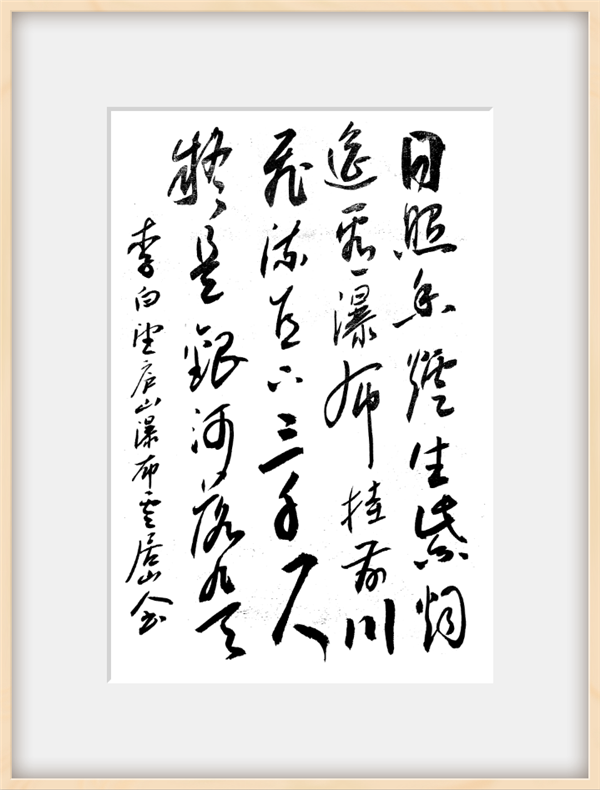 日照香爐生紫烟
遥看瀑布挂前川
飛流直下三千尺
疑是銀河落九天
李白望庐山瀑布雲居山